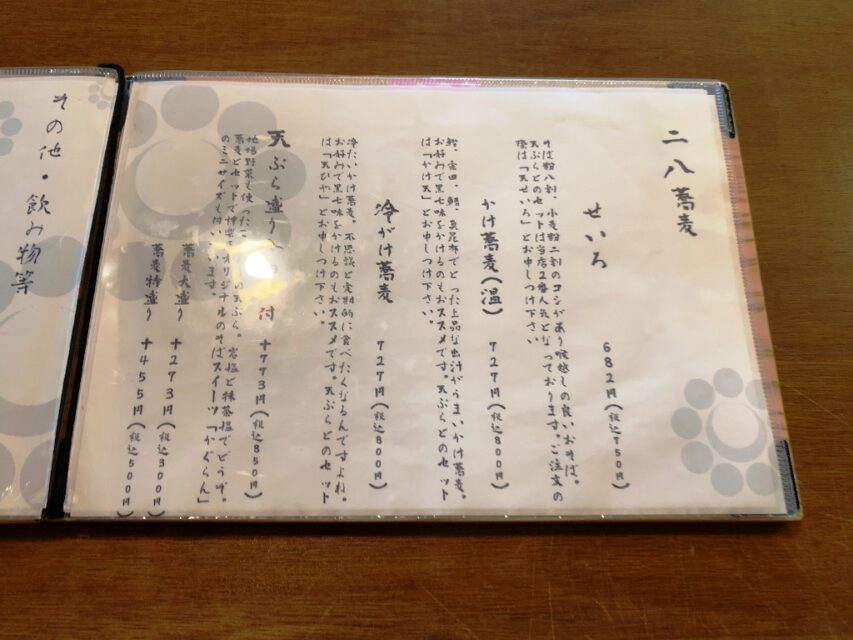 二八蕎麦
せいろ 682円(税込750円)
そば粉八割、小麦粉二割のコシがあり喉越しの良いおそば。
天ぷらとのセットは当店2番人気となっております。ご注文の
際は「天せいろ」とお申しつけ下さい
かけ蕎麦(温) 727円(税込800円)
鰹、宗田、鯖、真昆布でとった上品な出汁がうまいかけ蕎麦。
お好みで黒七味をかけるのもおススメです。天ぷらとのセット
は「かけ天」とお申しつけ下さい。
冷がけ蕎麦 727円(税込800円)
冷たいかけ蕎麦。不思議と定期的に食べたくなるんですよね。
お好みで黒七味をかけるのもおススメです。天ぷらとのセット
は「天ひや」とお申しつけ下さい。
天ぷら盛り 付 +773円(税込850円)
地場野菜も使った の天ぷら。岩塩と抹茶塩でどうぞ。
蕎麦とセットで オリジナルのそばスイーツ「かぐらん」
のミニサイズも付 います。
蕎麦大盛り +273円(税込300円)
蕎麦特盛り +455円(税込500円)
その他・飲み物等